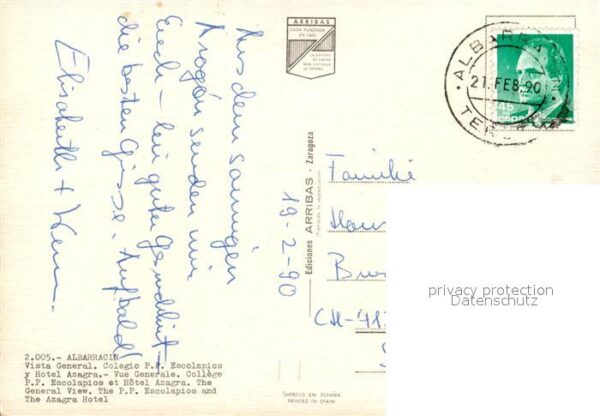 Aus dem sonnigen
Aragón senden wir
Euch – bei guter Gesundheit –
die besten Grüsse. Auf bald!
Elisabeth +
19-2-90
ARRIBAS
CASA FUNDADA
Ediciones ARRIBAS - Zaragoza
ALBARRA
21 FEB. 90
TER
45
Familie
CH-
privacy protection
Datenschutz
2.005.- ALBARRACIN
Vista General. Colegio P.P. Escolapios
y Hotel Azagra.- Vue Generale. Collège
P.P. Escolapios et Hôtel Azagra. The
General View, The P.P. Escolapios and
The Azagra Hotel
IMPRESO EN ESPAÑA
PRINTED IN SPAIN